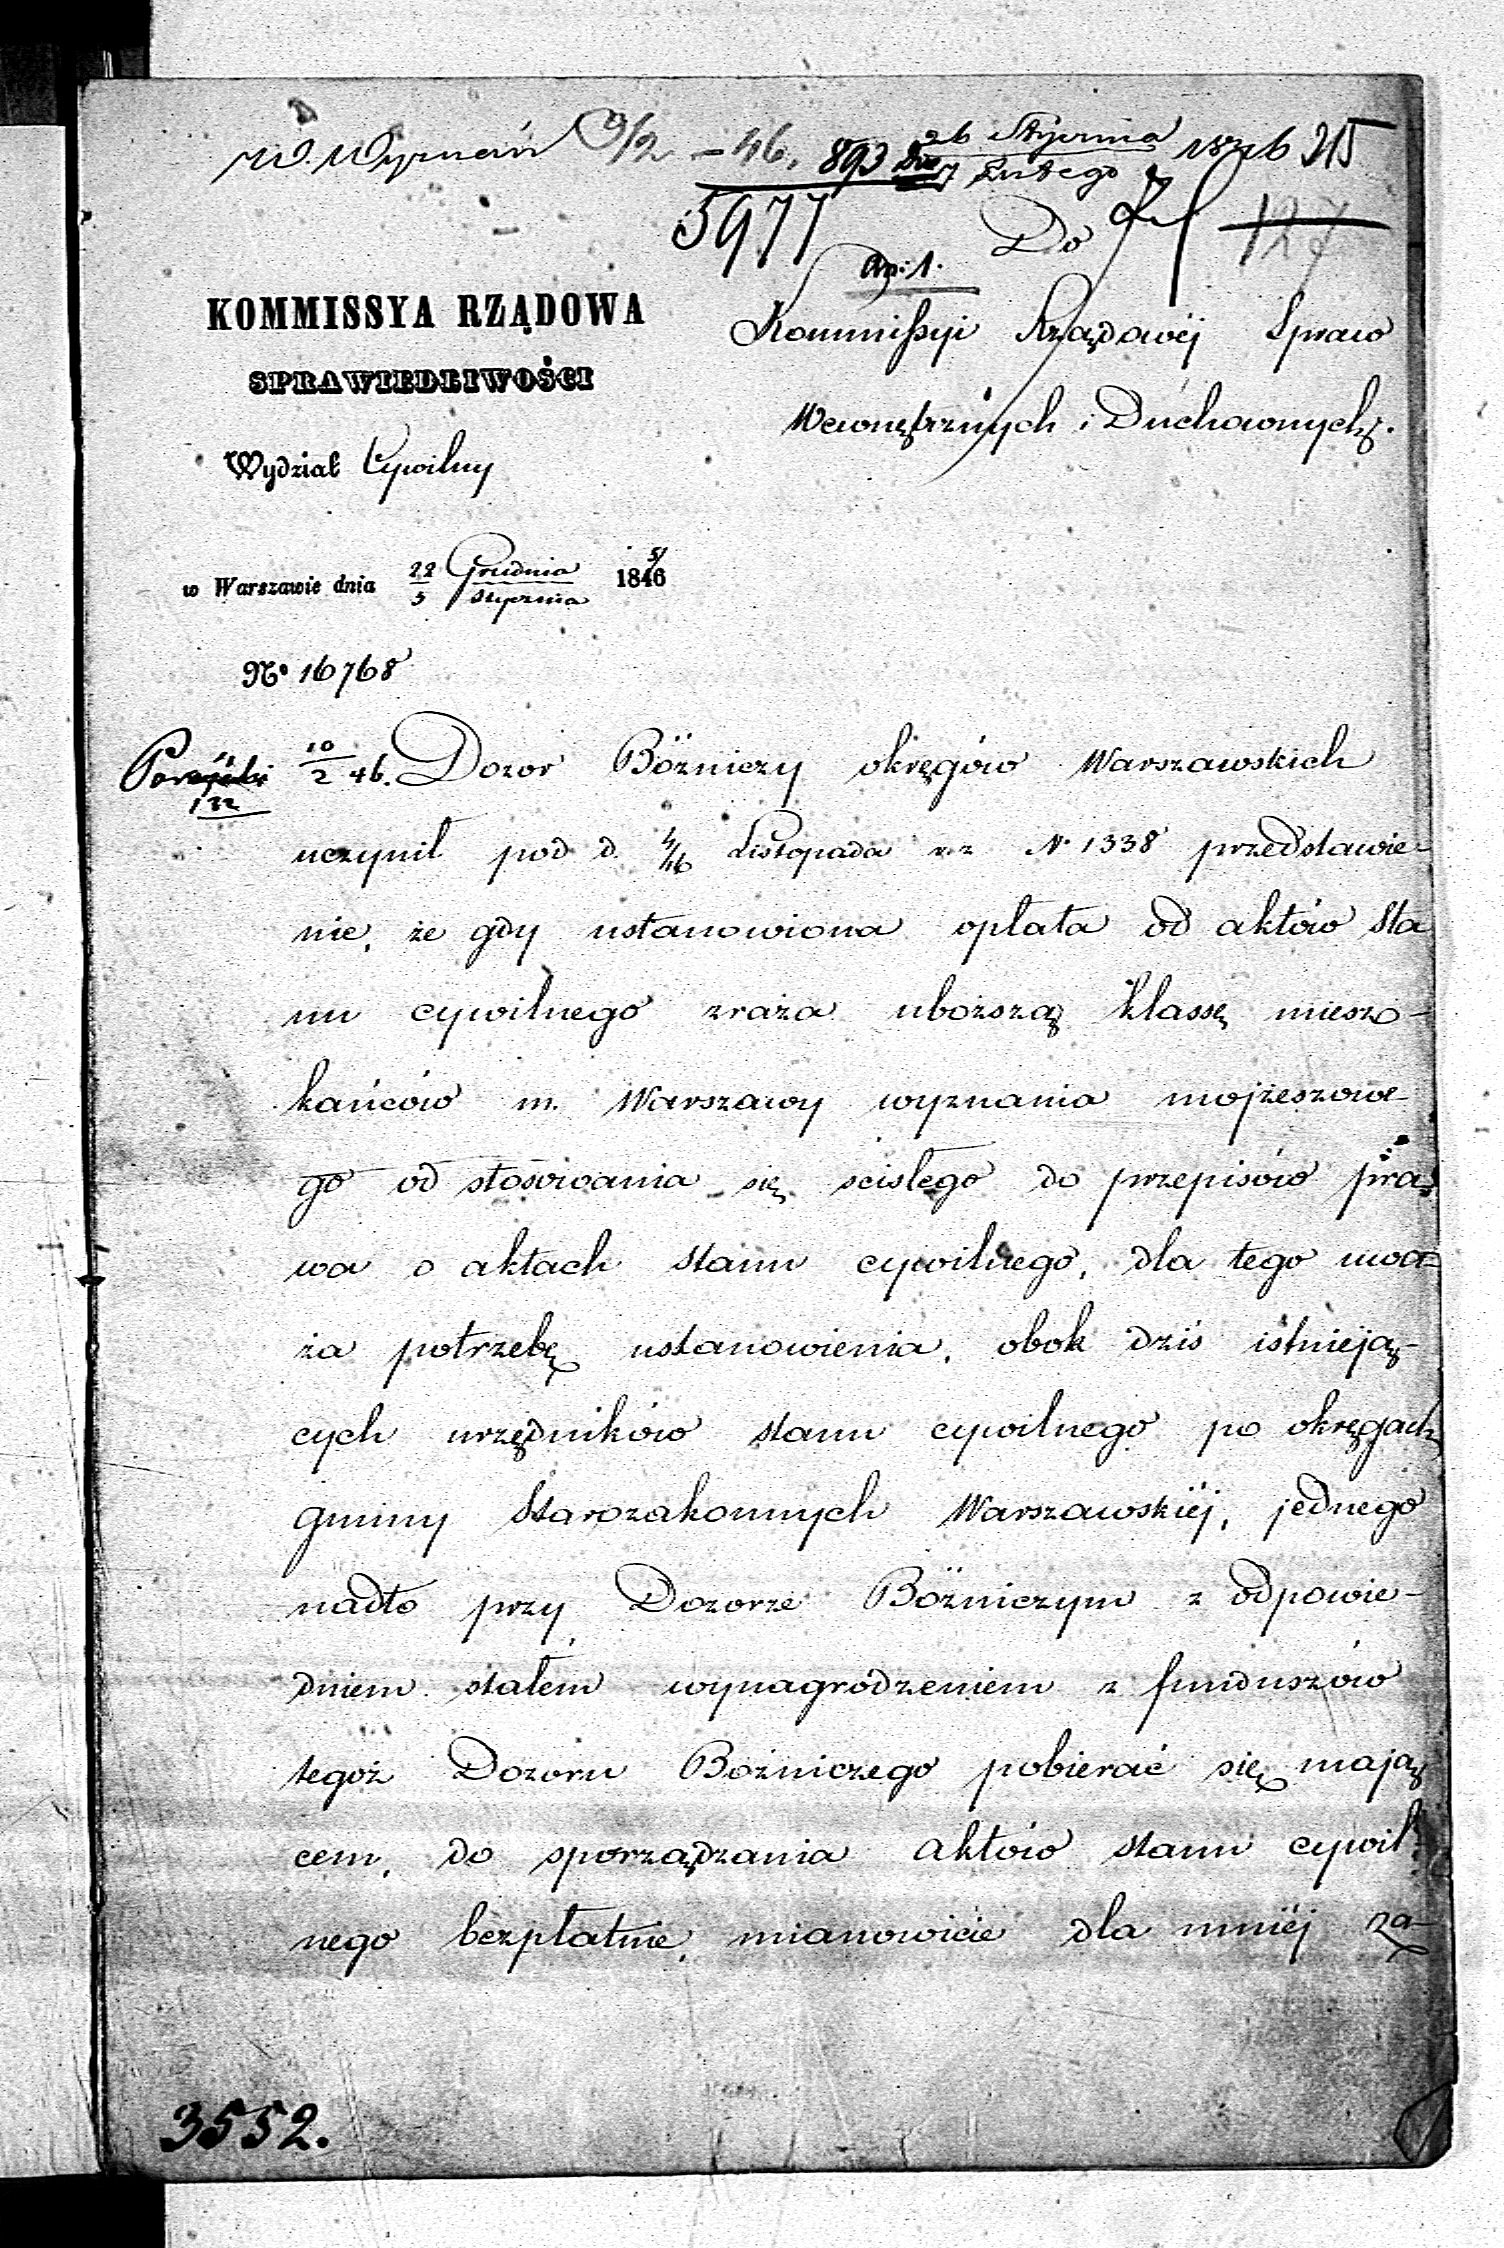 W. Wyznań 9/2 – 46. 893 26 Stycznia 1846 315
7 Lutego
5977 Do 127
KOMMISSYA RZĄDOWA
SPRAWIEDLIWOŚCI
Kommissyi Rządowéj Spraw
Wewnętrznych i Duchownych.
Wydział Cywilny
w Warszawie dnia 22 Grudnia 1846 5/
3 Stycznia
№ 16768
10/2 46. Dozor Bóżniczy okręgów Warszawskich
uczynił pod d. 4/16 Listopada r. z. N. 1338 przedstawie-
nie, że gdy ustanowiona opłata od aktów sta
nu cywilnego zraża uboższą klassę miesz-
kańców m. Warszawy wyznania mojżeszowe-
go od stosowania się scisłego do przepisów pra-
wa o aktach stanu cywilnego, dla tego uwa-
ża potrzebę ustanowienia, obok dziś istnieją-
cych urzędników stanu cywilnego po okręgach
gminy Starozakonnych Warszawskiéj, jednego
nadto przy Dozorze Bóżniczym z odpowie-
dniem stałem wynagrodzeniem z funduszów
tegoż Dozoru Bożniczego pobierać się mają
cem, do sporządzania aktów stanu cywil-
nego bezpłatnie, mianowicie dla mniéj za-
3552.